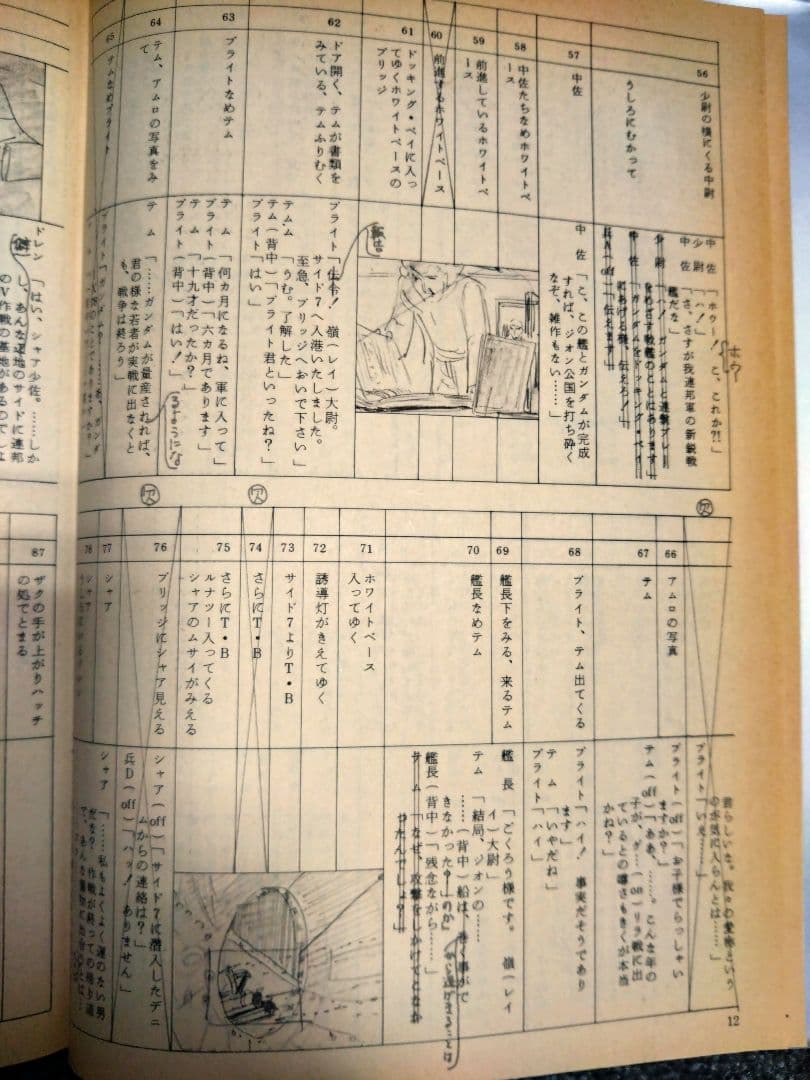 56
少尉の横にくる中尉
うしろにむかって
57
中佐
58
中佐たちなめホワイトベ
ース
59
前進しているホワイトベ
ース
60
前進するホワイトベース
61
ドッキング・ベイに入っ
てゆくホワイトベースの
ブリッジ
62
ドア開く、テムが書類を
みている、テムふりむく
63
ブライトなめテム
64
テム、アムロの写真をみ
て
65
テムなめブライト
中佐「ホゥー！　こ、これか？！」
ホウ
少尉「ハ！」
中佐「さ、さすが我連邦軍の新鋭戦
艦だな」
少尉「ハ！　ガンダムと連撃プレー
をめざす戦艦のことはあります」
中佐「ガンダムをドッキング・ベイ
にあげる機、伝えろ！」
兵A（off）「伝えます」
中佐「こ、この艦とガンダムが完成
すれば、ジオン公国を打ち砕く
なぞ、雑作もない……」
ブライト「仕令！　嶺（レイ）大尉。
報告
サイド7へ入港いたしました。
至急、ブリッジへおいで下さい」
テム「うむ。了解した」
テム（背中）「ブライト君といったね？」
ブライト「はい」
テム「何ヵ月になるね、軍に入って」
ブライト（背中）「六ヵ月であります」
テム「十九才だったか？」
ブライト（背中）「はい！」
テム「……ガンダムが量産されれば、
るようにな
君の様な若者が実戦に出なくと
も、戦争は終ろう」
ドレン「はい、シャア少佐。……しか
し、あんな辺地のサイドに連邦
のV作戦の基地があるのでしょ
欠
欠
欠
66
アムロの写真
67
テム
68
ブライト、テム出てくる
69
艦長下をみる、来るテム
70
艦長なめテム
71
ホワイトベース
入ってゆく
72
誘導灯がきえてゆく
73
サイド7よりT・B
74
さらにT・B
75
さらにT・B
ルナツー入ってくる
シャアのムサイがみえる
76
ブリッジにシャア見える
77
シャア
78
シャア
87
ザクの手が上がりハッチ
の処でとまる
君らしいな。我々の愛称という
のが気に入らんとは……」
ブライト「いえ……」
ブライト（off）「お子様でらっしゃい
ますか？」
テム（off）「ああ、……。こんな年の
子が、ゲ…（on）リラ戦に出
ているとの噂さもきくが本当
かね？」
ブライト「ハイ！　事実だそうであり
ます」
テム「いやだね」
ブライト「ハイ」
艦長「ごくろう様です。　嶺（レイ
イ）大尉」
テム「結局、ジオンの……
……（背中）船は、巻く事がで
きなかった？」のか」
艦長（背中）「残念ながら……」
テム「なぜ、攻撃をしかけてとなか
ったんでしょ？」
シャア（off）「サイド7に潜入したデニ
ムからの連絡は？」
兵D（off）「ハッ！　ありません」
シャア「……私もよくよく運のない男
だな？　作戦が終っての帰り道
で、あんな獲物に出会うとは…
12